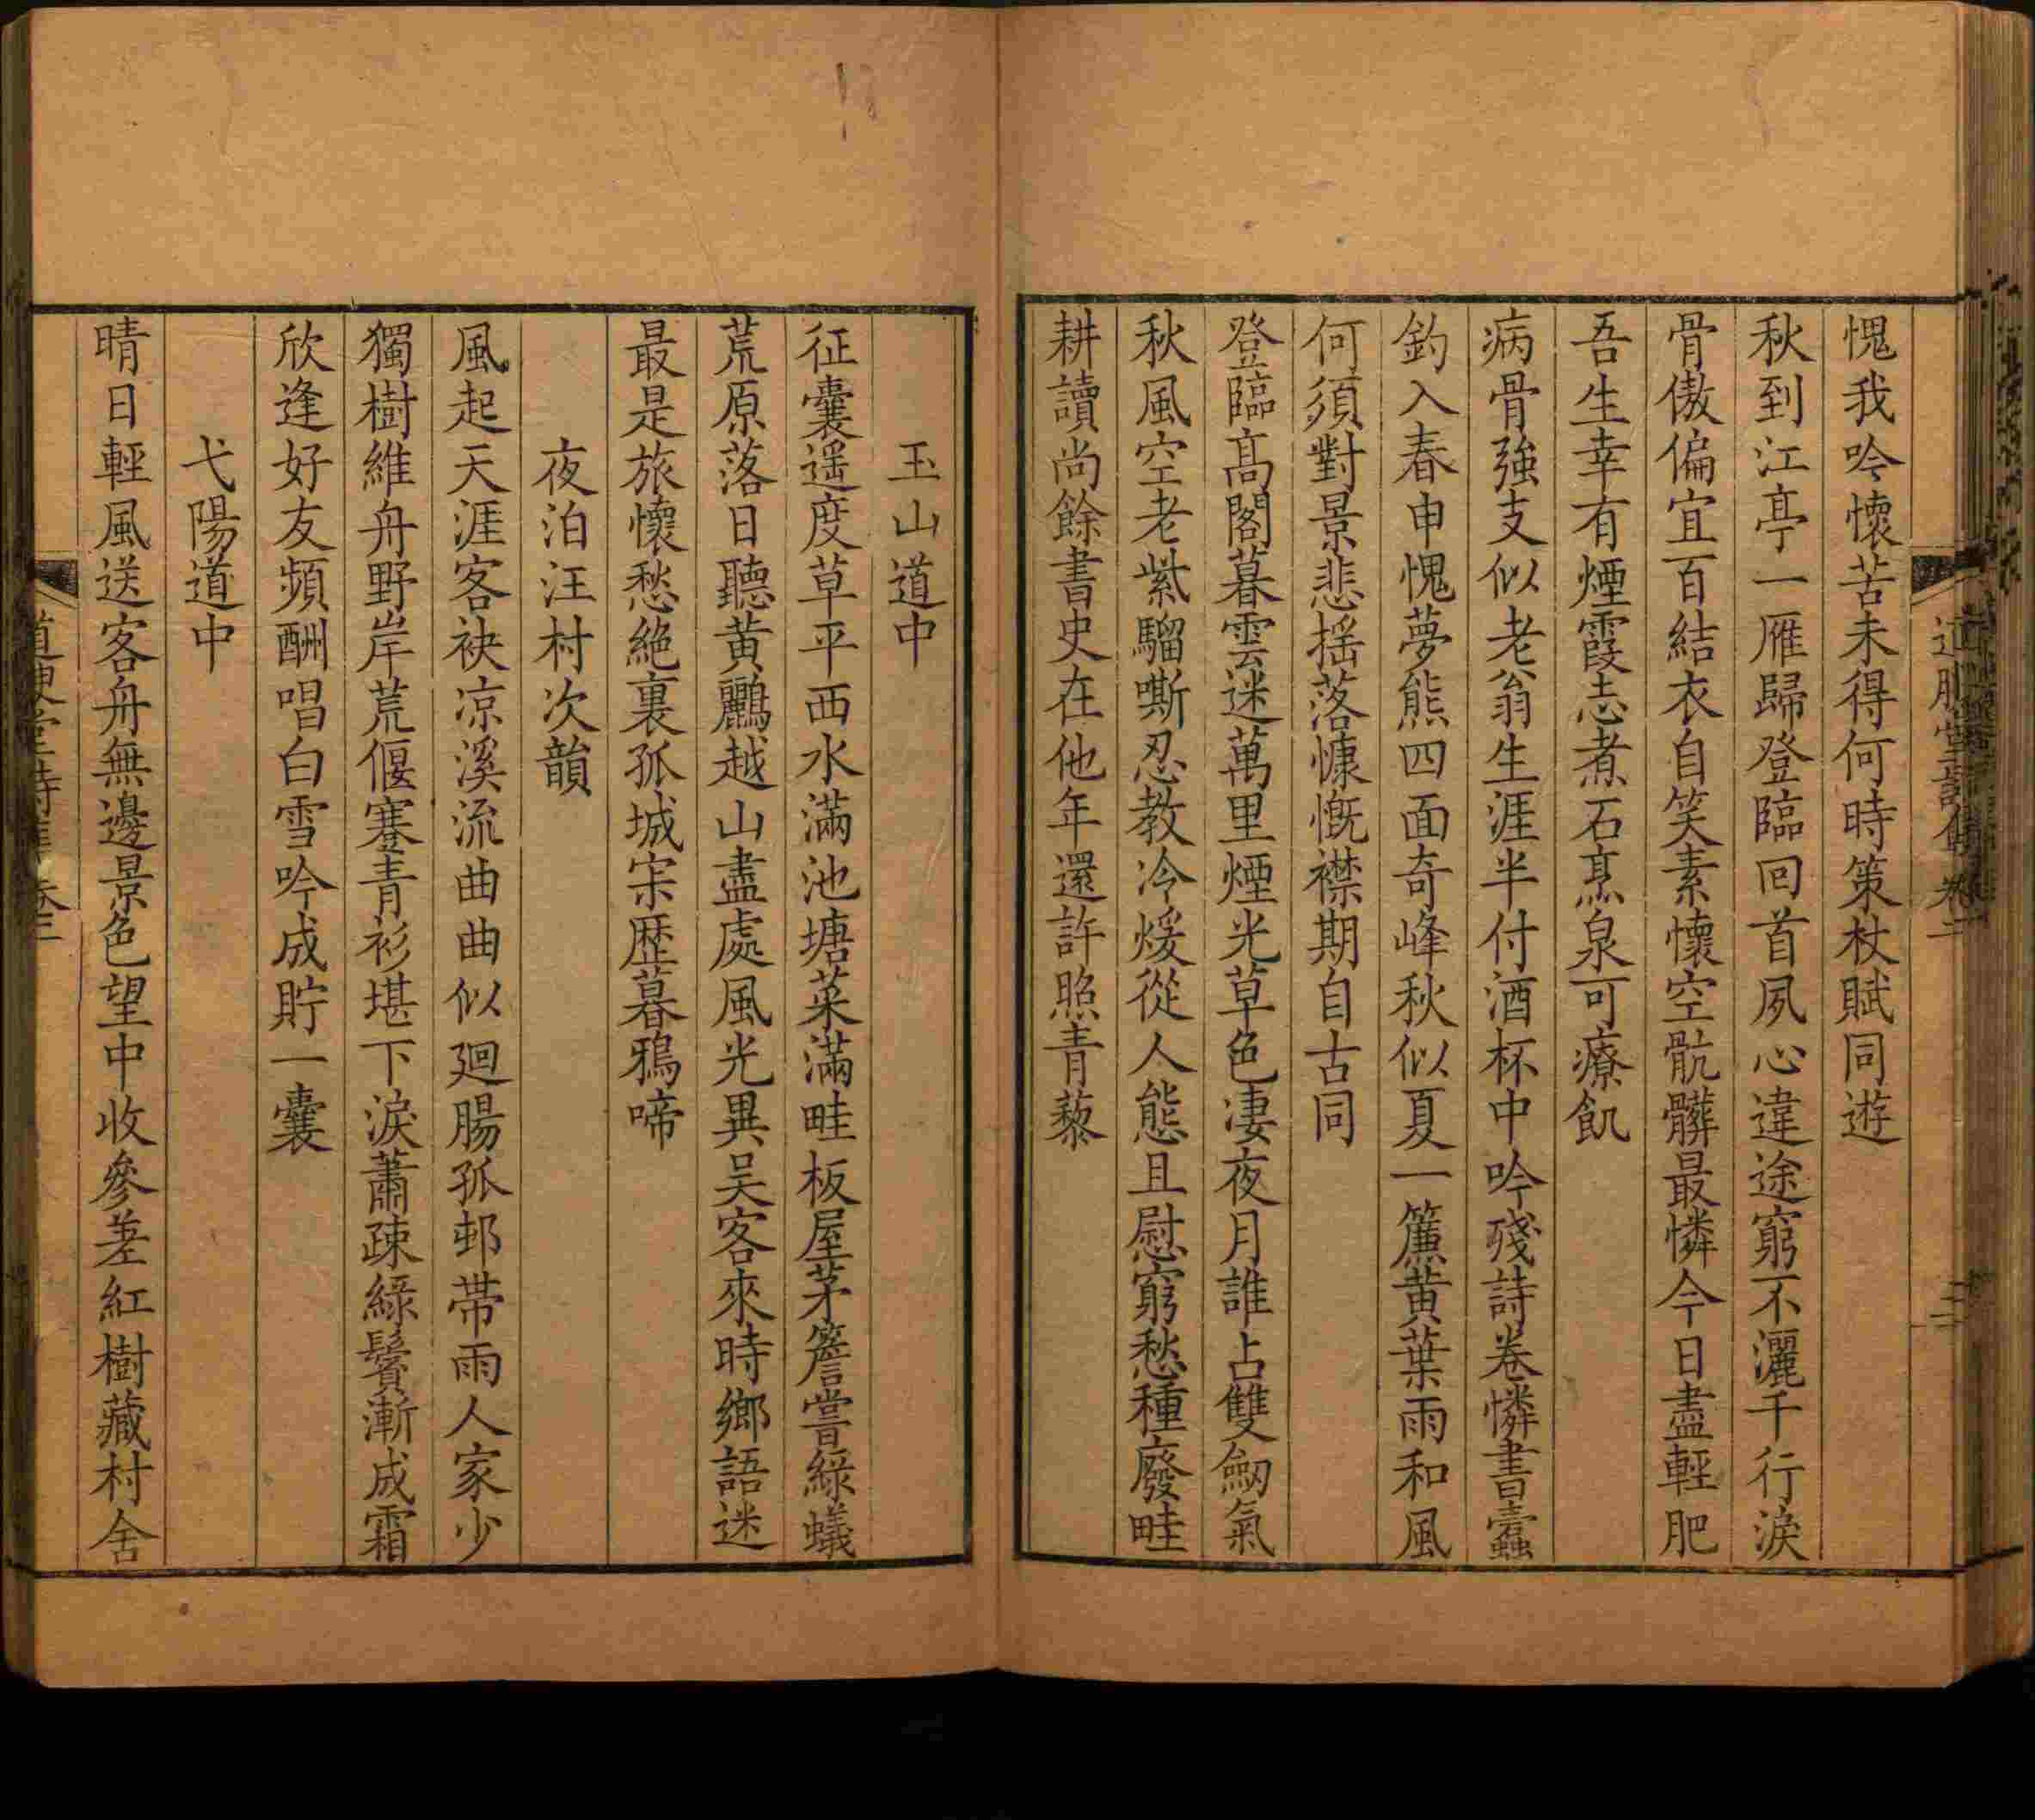 愧我吟懷苦未得何時策杖賦同遊
秋到江亭一雁歸登臨回首夙心違途窮不灑千行淚
骨傲偏宜百結衣自笑素懷空骯髒最憐今日盡輕肥
吾生幸有煙霞志煮石烹泉可療飢
病骨強支似老翁生涯半付酒杯中吟殘詩卷憐書蠹
釣入春申愧夢熊四面奇峰秋似夏一簾黃葉雨和風
何須對景悲搖落慷慨襟期自古同
登臨高閣暮雲迷萬里煙光草色凄夜月誰占雙劒氣
秋風空老紫騮嘶忍教冷煖從人態且慰窮愁種廢畦
耕讀尚餘書史在他年還許照青藜
玉山道中
征囊遥度草平西水滿池塘菜滿畦板屋茅簷嘗綠蟻
荒原落日聽黃鸝越山盡處風光異吴客來時鄉語迷
最是旅懷愁絕裏孤城宋歴暮鴉啼
夜泊汪村次韻
風起天涯客袂凉溪流曲曲似廻腸孤邨帶雨人家少
獨樹維舟野岸荒偃蹇青衫堪下淚蕭疎綠鬢漸成霜
欣逢好友頻酬唱白雪吟成貯一囊
弋陽道中
晴日輕風送客舟無邊景色望中收參差紅樹藏村舍